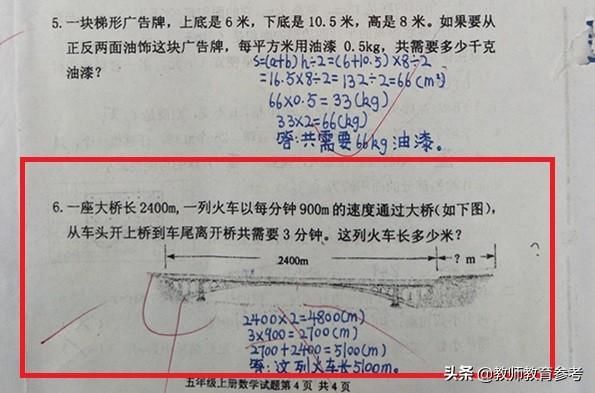 5.一块梯形广告牌，上底是6米，下底是10.5米，高是8米。如果要从
正反两面油饰这块广告牌，每平方米用油漆 0.5kg，共需要多少千克
油漆？
S=(a+b)h÷2=(6+10.5)×8÷2
=16.5×8÷2=132÷2=66(m²)
66×0.5=33(kg)
33×2=66(kg)
答:共需要66kg油漆。
6.一座大桥长2400m,一列火车以每分钟900m的速度通过大桥(如下图),
从车头开上桥到车尾离开桥共需要3分钟。这列火车长多少米？
2400m
? m
2400×2=4800(m)
3×900=2700(m)
2700+2400=5100(m)
答:这列火车长5100m。
五年级上册数学试题第4页 共4页
头条 @教师教育参考